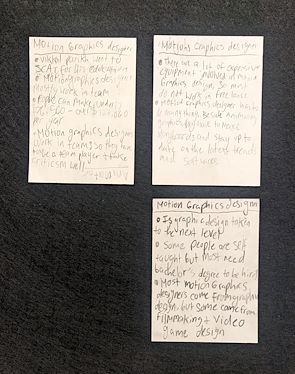 Motion Graphics designer
• went to
SCAD for his education
• Motion graphics designer
mostly work in team
• People can make under
per year
• Motion graphics designer
work in teams so they have
to be a team player + take
criticism well
Motions Graphics designer
• They are a lot of expensive
equipment involved in motion
Graphics design. So most
do not work in free lance
• Motion graphics designer has to
do many things. Beside
graphics they have to
storyboards and stay up to
date on the latest trends
and softwares
Motion Graphics designer
• Is graphic design taken
to the next level
• Some people are self
taught but most need
bachelor's degree to be hired
• Most motion Graphics
designers come from graphic
design, but some come from
filmmaking + video
game design